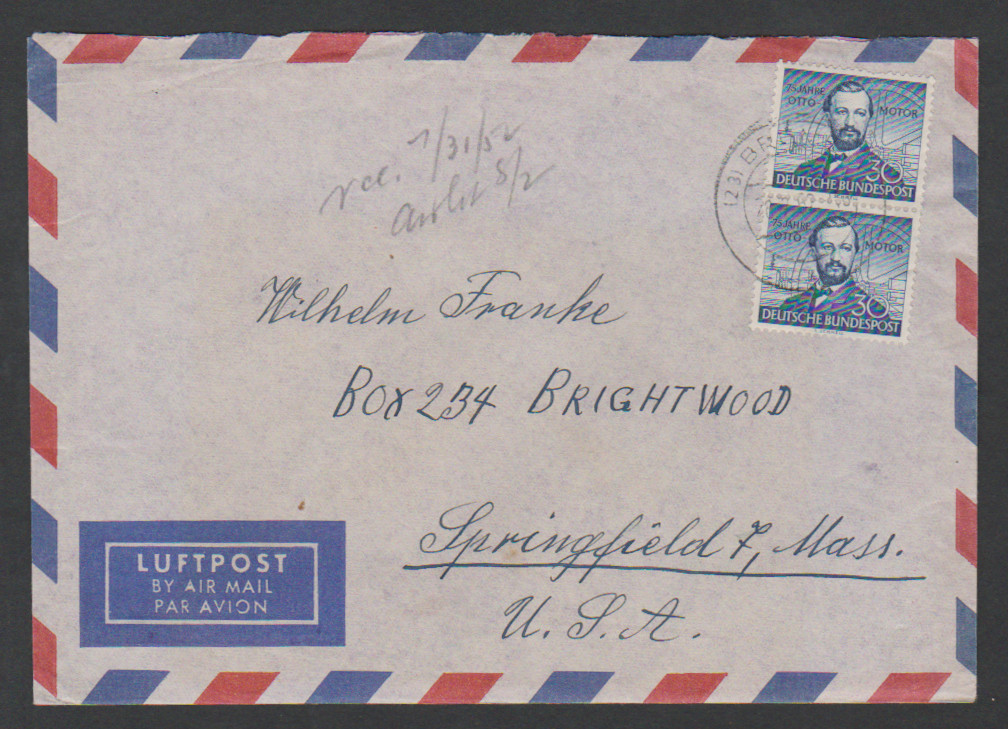 75 JAHRE
OTTO MOTOR
30
DEUTSCHE BUNDESPOST
75 JAHRE
OTTO MOTOR
30
DEUTSCHE BUNDESPOST
(23) BRE
rec.
Wilhelm Franke
Box 234 BRIGHTWOOD
Springfield 7, Mass.
U. S. A.
LUFTPOST
BY AIR MAIL
PAR AVION